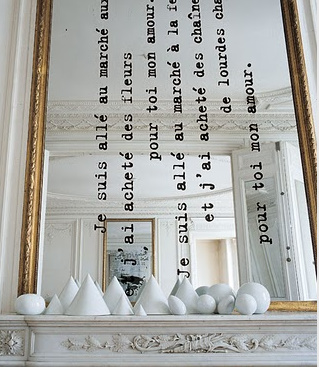 Je suis allé au marché aux
j'ai acheté des fleurs
pour toi mon amour.
Je suis allé au marché à la fe
et j'ai acheté des chaîne
de lourdes cha
pour toi mon amour.